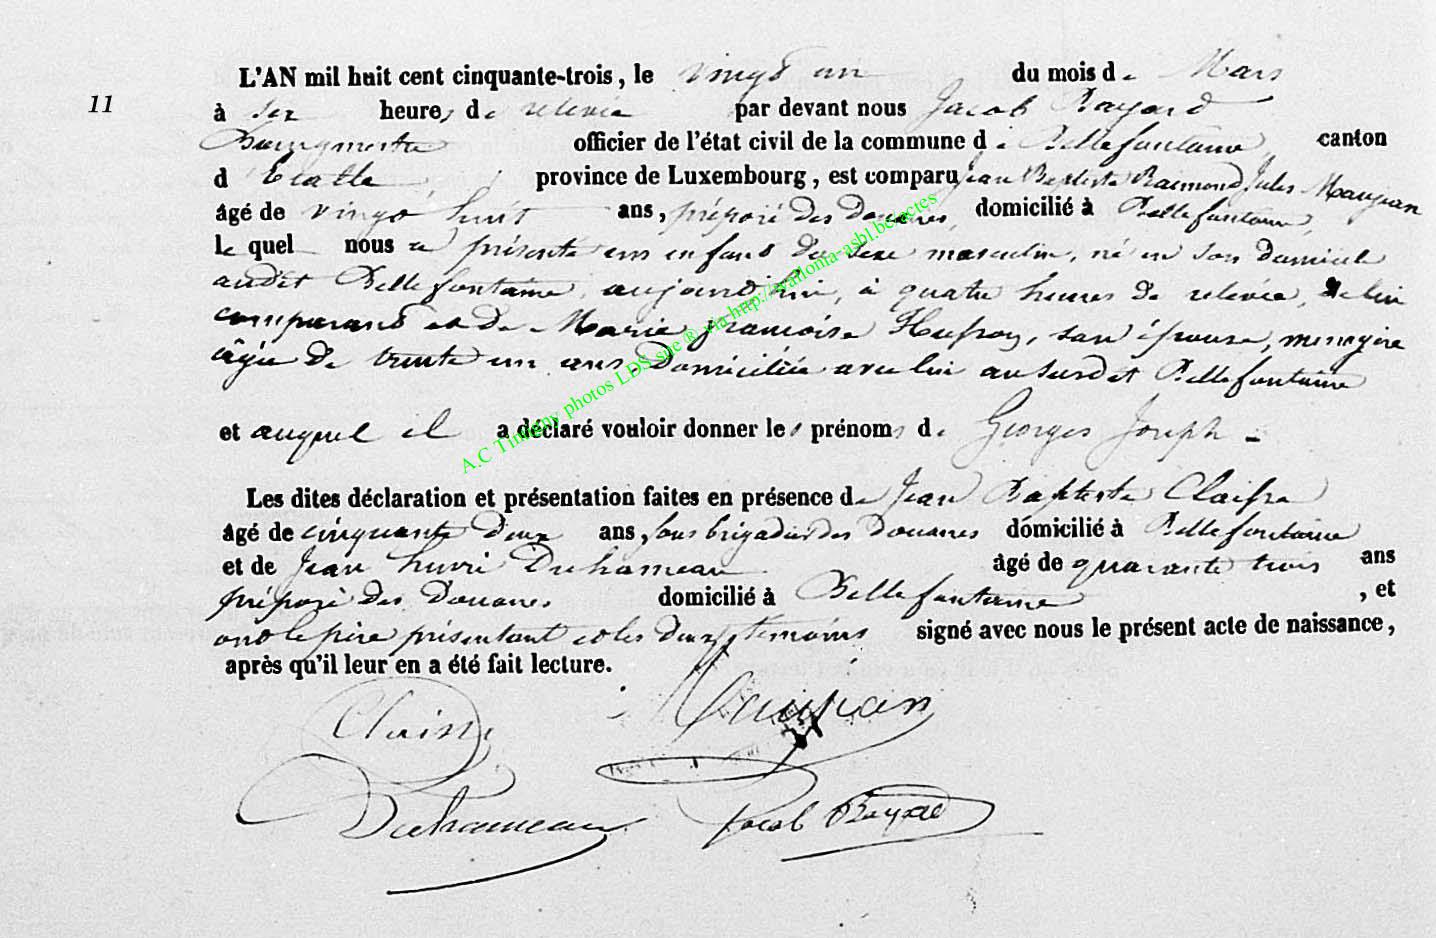 11
L'AN mil huit cent cinquante-trois, le vingt un du mois de Mars
à six heures de relevée par devant nous Jacob Bayard
Bourgmestre officier de l'état civil de la commune de Bellefontaine canton
d'Etalle, province de Luxembourg, est comparu Jean Baptiste Raimond Jules Maujean
âgé de vingt huit ans, préposé des douanes, domicilié à Bellefontaine,
lequel nous a présenté un enfant du sexe masculin, né en son domicile
audit Bellefontaine, aujourd'hui, à quatre heures de relevée, de lui
comparant et de Marie françoise, son épouse, menagère
âgée de trente un ans, Domiciliée avec lui au susdit Bellefontaine
et auquel il a déclaré vouloir donner les prénoms de Georges Joseph -
Les dites déclaration et présentation faites en présence de Jean Baptiste
âgé de cinquante deux ans, sous brigadier des douanes domicilié à Bellefontaine
et de Jean henri Duhameau âgé de quarante trois ans
préposé des Douanes domicilié à Bellefontaine, et
ont le père présentant et les deux témoins signé avec nous le présent acte de naissance,
après qu'il leur en a été fait lecture.
Maujean
Duhameau Jacob Bayard
A.C Tintigny photos LDS sue ® via http://wallonia-asbl.be/actes